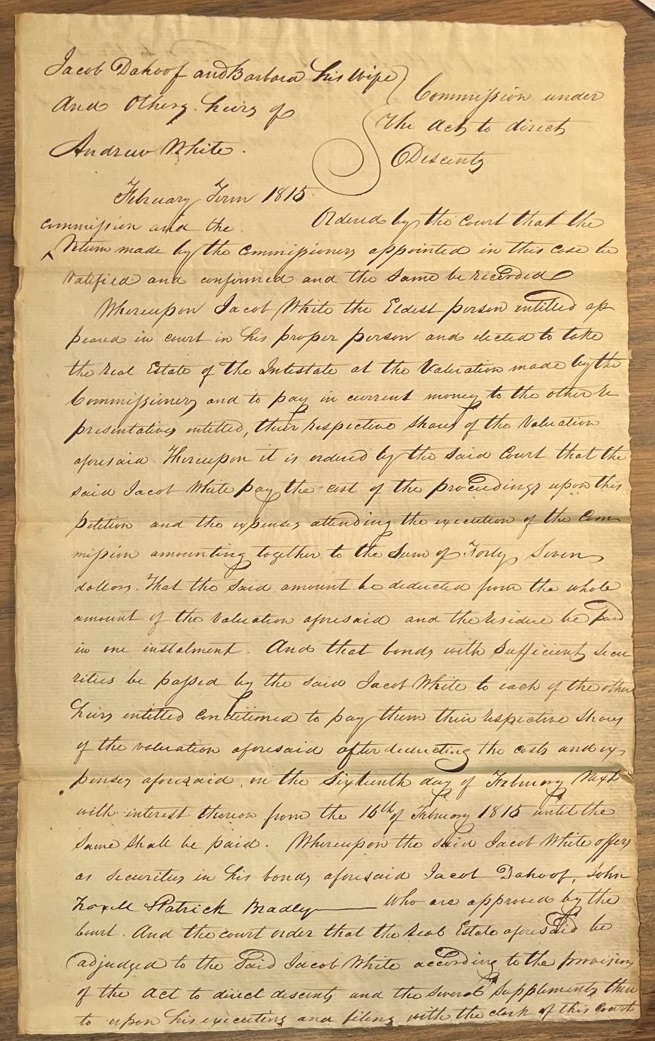 Jacob Dahoof and Barbara his Wife
And Others heirs of
Andrew White.
Commission under
the Act to direct
Descents
February Term 1815.
Ordered by the Court that the
commission and the
return made by the Commissioners appointed in this case be
ratified and confirmed and the same be recorded
Whereupon Jacob White the Eldest person entitled ap
peared in court in his proper person and elected to take
the real Estate of the Intestate at the Valuation made by the
Commissioners and to pay in current money to the other re
presentatives entitled, their respective shares of the Valuation
aforesaid. Thereupon it is ordered by the said Court that the
said Jacob White pay the cost of the proceedings upon this
petition and the expenses attending the execution of the Com
mission amounting together to the Sum of Forty Seven
dollars. That the said amount be deducted from the whole
amount of the Valuation aforesaid and the residue be paid
in one instalment. And that bonds with Sufficient secu
rities be passed by the said Jacob White to each of the other
heirs entitled conditioned to pay them their respective shares
of the valuation aforesaid after deducting the costs and ex
penses aforesaid, on the Sixteenth day of February Next
with interest thereon from the 16th of February 1815 until the
same shall be paid. Whereupon the said Jacob White offers
as securities in his bonds aforesaid Jacob Dahoof, John
& Patrick Bradley who are approved by the
Court. And the court order that the Real Estate aforesaid be
adjudged to the Said Jacob White according to the provisions
of the Act to direct descents and the several Supplements there
to upon his executing and filing with the clerk of this Court